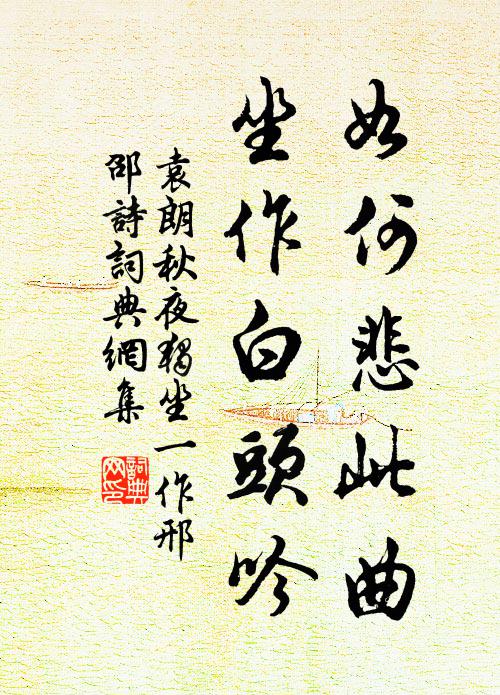 如何悲此曲
坐作白頭吟
袁朗秋夜獨坐一作邢
邵詩詞典網集
詞典
网印